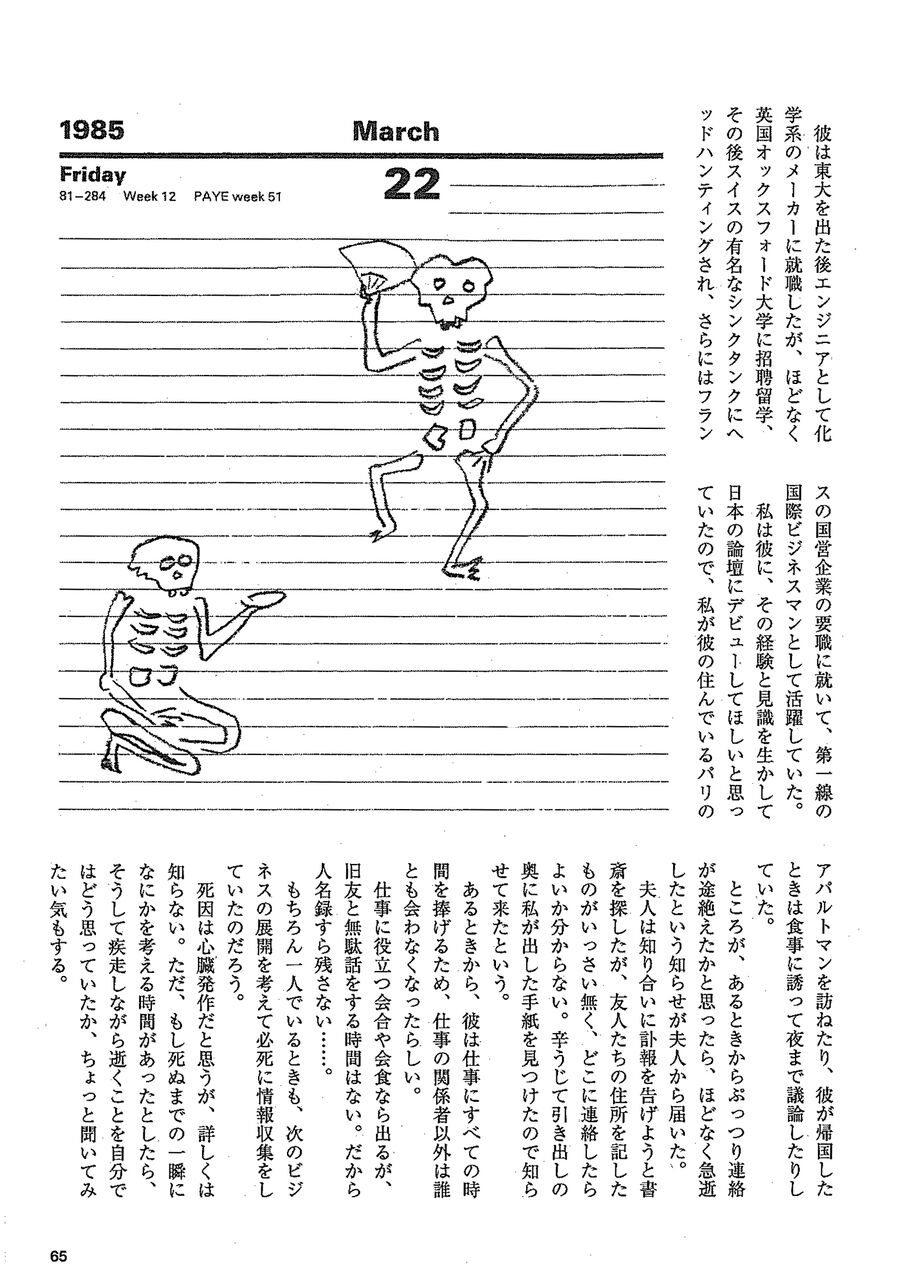 1985
March
Friday
22
81–284 Week 12 PAYE week 51
彼は東大を出た後エンジニアとして化
学系のメーカーに就職したが、ほどなく
英国オックスフォード大学に招聘留学、
その後スイスの有名なシンクタンクにヘ
ッドハンティングされ、さらにはフラン
スの国営企業の要職に就いて、第一線の
国際ビジネスマンとして活躍していた。
私は彼に、その経験と見識を生かして
日本の論壇にデビューしてほしいと思っ
ていたので、私が彼の住んでいるパリの
アパルトマンを訪ねたり、彼が帰国した
ときは食事に誘って夜まで議論したりし
ていた。
ところが、あるときからぷっつり連絡
が途絶えたかと思ったら、ほどなく急逝
したという知らせが夫人から届いた。
夫人は知り合いに訃報を告げようと書
斎を探したが、友人たちの住所を記した
ものがいっさい無く、どこに連絡したら
よいか分からない。辛うじて引き出しの
奥に私が出した手紙を見つけたので知ら
せて来たという。
あるときから、彼は仕事にすべての時
間を捧げるため、仕事の関係者以外は誰
とも会わなくなったらしい。
仕事に役立つ会合や会食なら出るが、
旧友と無駄話をする時間はない。だから
人名録すら残さない……。
もちろん一人でいるときも、次のビジ
ネスの展開を考えて必死に情報収集をし
ていたのだろう。
死因は心臓発作だと思うが、詳しくは
知らない。ただ、もし死ぬまでの一瞬に
なにかを考える時間があったとしたら、
そうして疾走しながら逝くことを自分で
はどう思っていたか、ちょっと聞いてみ
たい気もする。
65